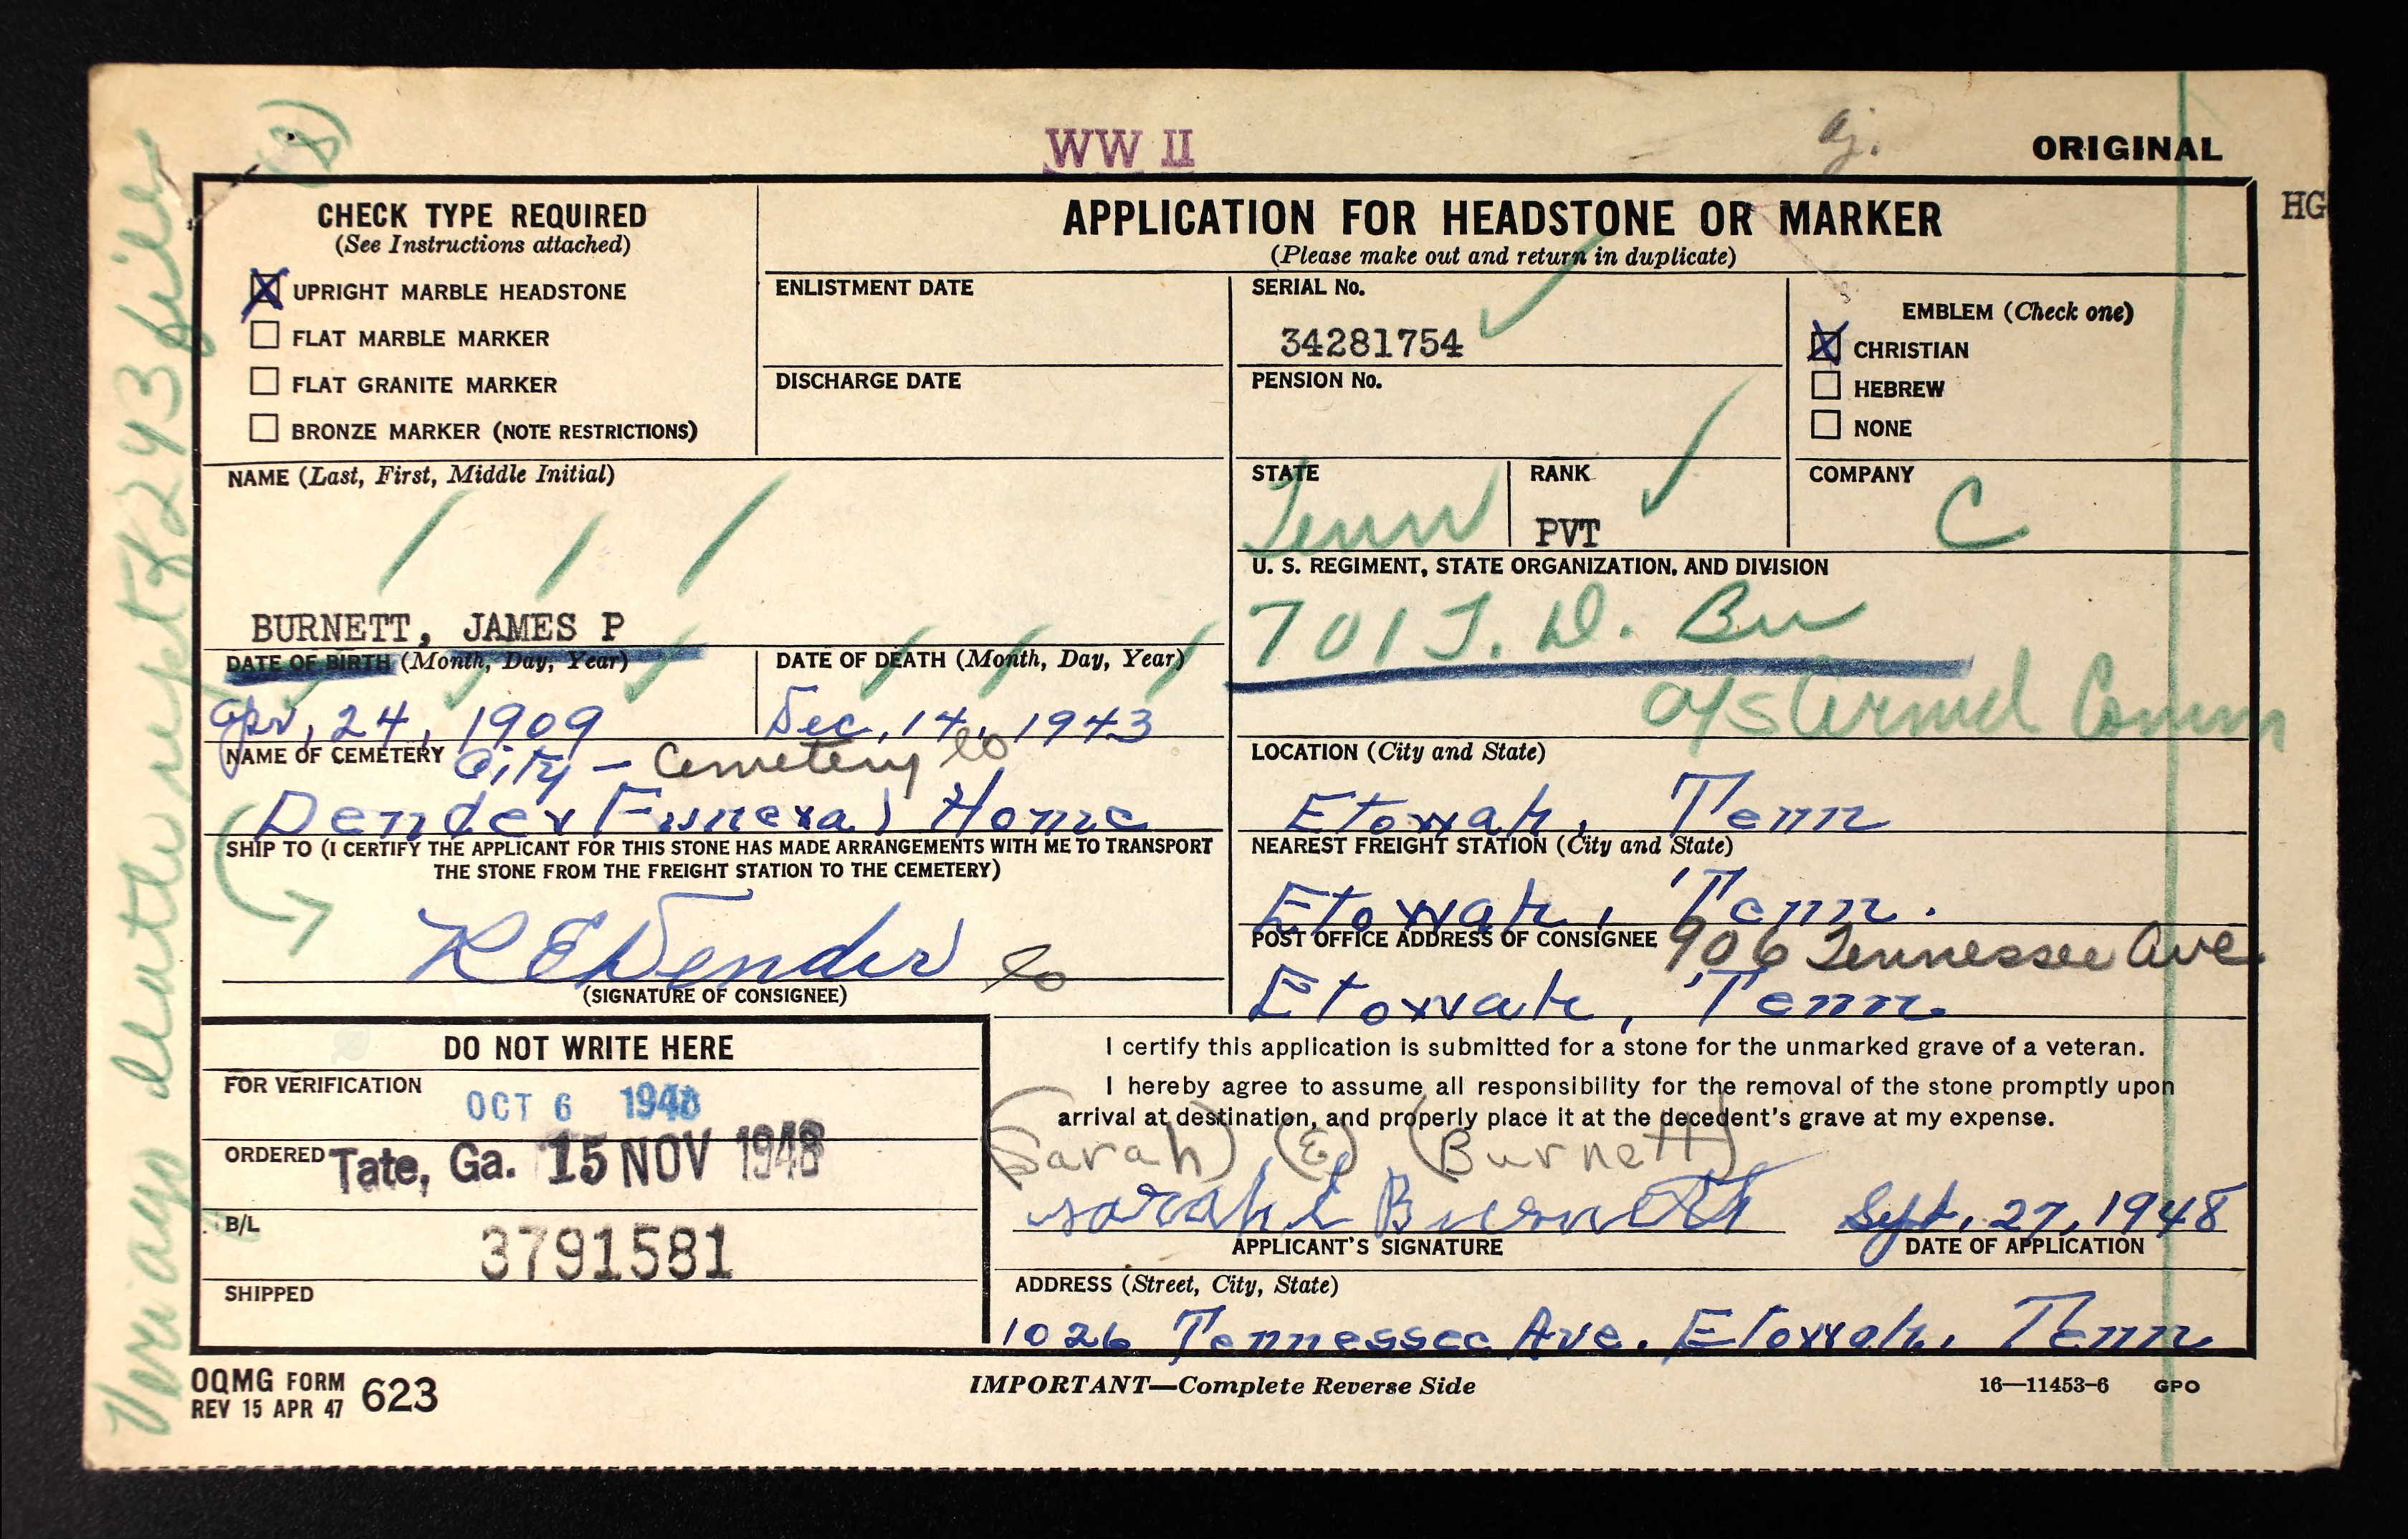 WW II
ORIGINAL
HG
CHECK TYPE REQUIRED
(See Instructions attached)
UPRIGHT MARBLE HEADSTONE
FLAT MARBLE MARKER
FLAT GRANITE MARKER
BRONZE MARKER (NOTE RESTRICTIONS)
APPLICATION FOR HEADSTONE OR MARKER
(Please make out and return in duplicate)
ENLISTMENT DATE
DISCHARGE DATE
SERIAL No.
34281754
PENSION No.
EMBLEM (Check one)
CHRISTIAN
HEBREW
NONE
NAME (Last, First, Middle Initial)
BURNETT, JAMES P
STATE
Tenn
RANK
PVT
COMPANY
C
U. S. REGIMENT, STATE ORGANIZATION, AND DIVISION
701 T. D. Bn
DATE OF BIRTH (Month, Day, Year)
Apr, 24, 1909
DATE OF DEATH (Month, Day, Year)
Dec, 14, 1943
NAME OF CEMETERY City - Cemetery
Dender Funeral Home
LOCATION (City and State)
Etowah, Tenn
SHIP TO (I CERTIFY THE APPLICANT FOR THIS STONE HAS MADE ARRANGEMENTS WITH ME TO TRANSPORT
THE STONE FROM THE FREIGHT STATION TO THE CEMETERY)
R E Dender
(SIGNATURE OF CONSIGNEE)
NEAREST FREIGHT STATION (City and State)
Etowah, Tenn.
POST OFFICE ADDRESS OF CONSIGNEE 906 Tennessee Ave
Etowah, Tenn.
DO NOT WRITE HERE
FOR VERIFICATION
OCT 6 1948
ORDERED Tate, Ga. 15 NOV 1948
B/L
3791581
SHIPPED
I certify this application is submitted for a stone for the unmarked grave of a veteran.
I hereby agree to assume all responsibility for the removal of the stone promptly upon
arrival at destination, and properly place it at the decedent's grave at my expense.
(Sarah) (E) (Burnett)
Sarah E Burnett
APPLICANT'S SIGNATURE
Sept, 27, 1948
DATE OF APPLICATION
ADDRESS (Street, City, State)
1026 Tennessee Ave. Etowah, Tenn
OQMG FORM 623
REV 15 APR 47
IMPORTANT—Complete Reverse Side
16—11453-6 GPO